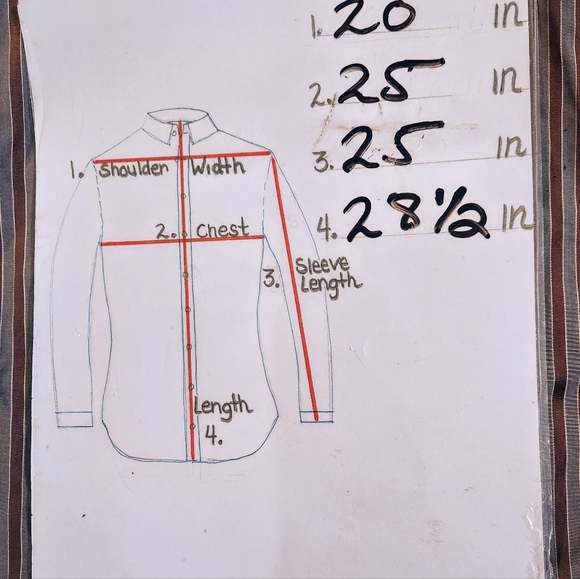 1. 20 in
2. 25 in
3. 25 in
4. 28 1/2 in
1. Shoulder Width
2. Chest
3. Sleeve
Length
Length
4.